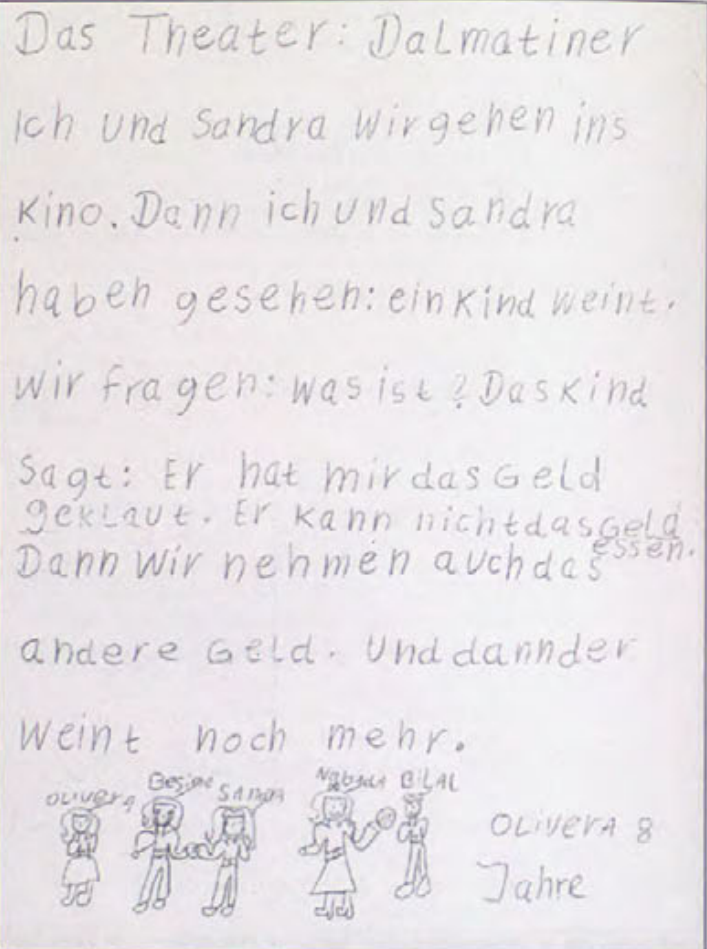 Das Theater: Dalmatiner
Ich und Sandra wir gehen ins
Kino. Dann ich und Sandra
haben gesehen: ein Kind weint.
Wir fragen: was ist? Das Kind
sagt: Er hat mir das Geld
geklaut. Er kann nicht das Geld
essen.
Dann wir nehmen auch das
andere Geld. Und dann der
weint noch mehr.
OLIVERA SANDRA BILAL
OLIVERA 8
Jahre